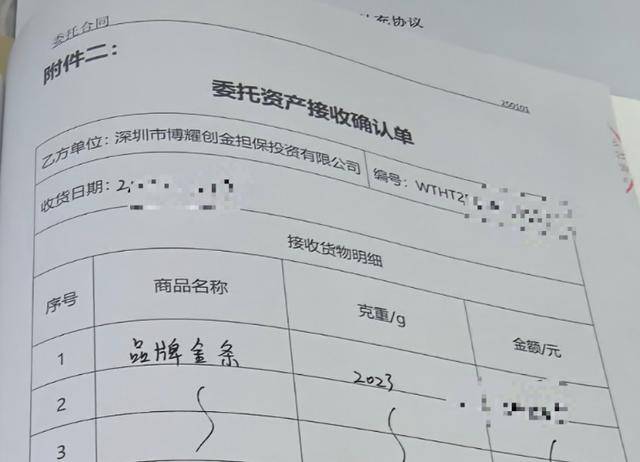 充协议
委托合同
250101
附件二：
委托资产接收确认单
乙方单位：深圳市博耀创金担保投资有限公司 编号：WTHT2
收货日期：2
接收货物明细
序号 商品名称 克重/g 金额/元
1 品牌金条 2023
2
3